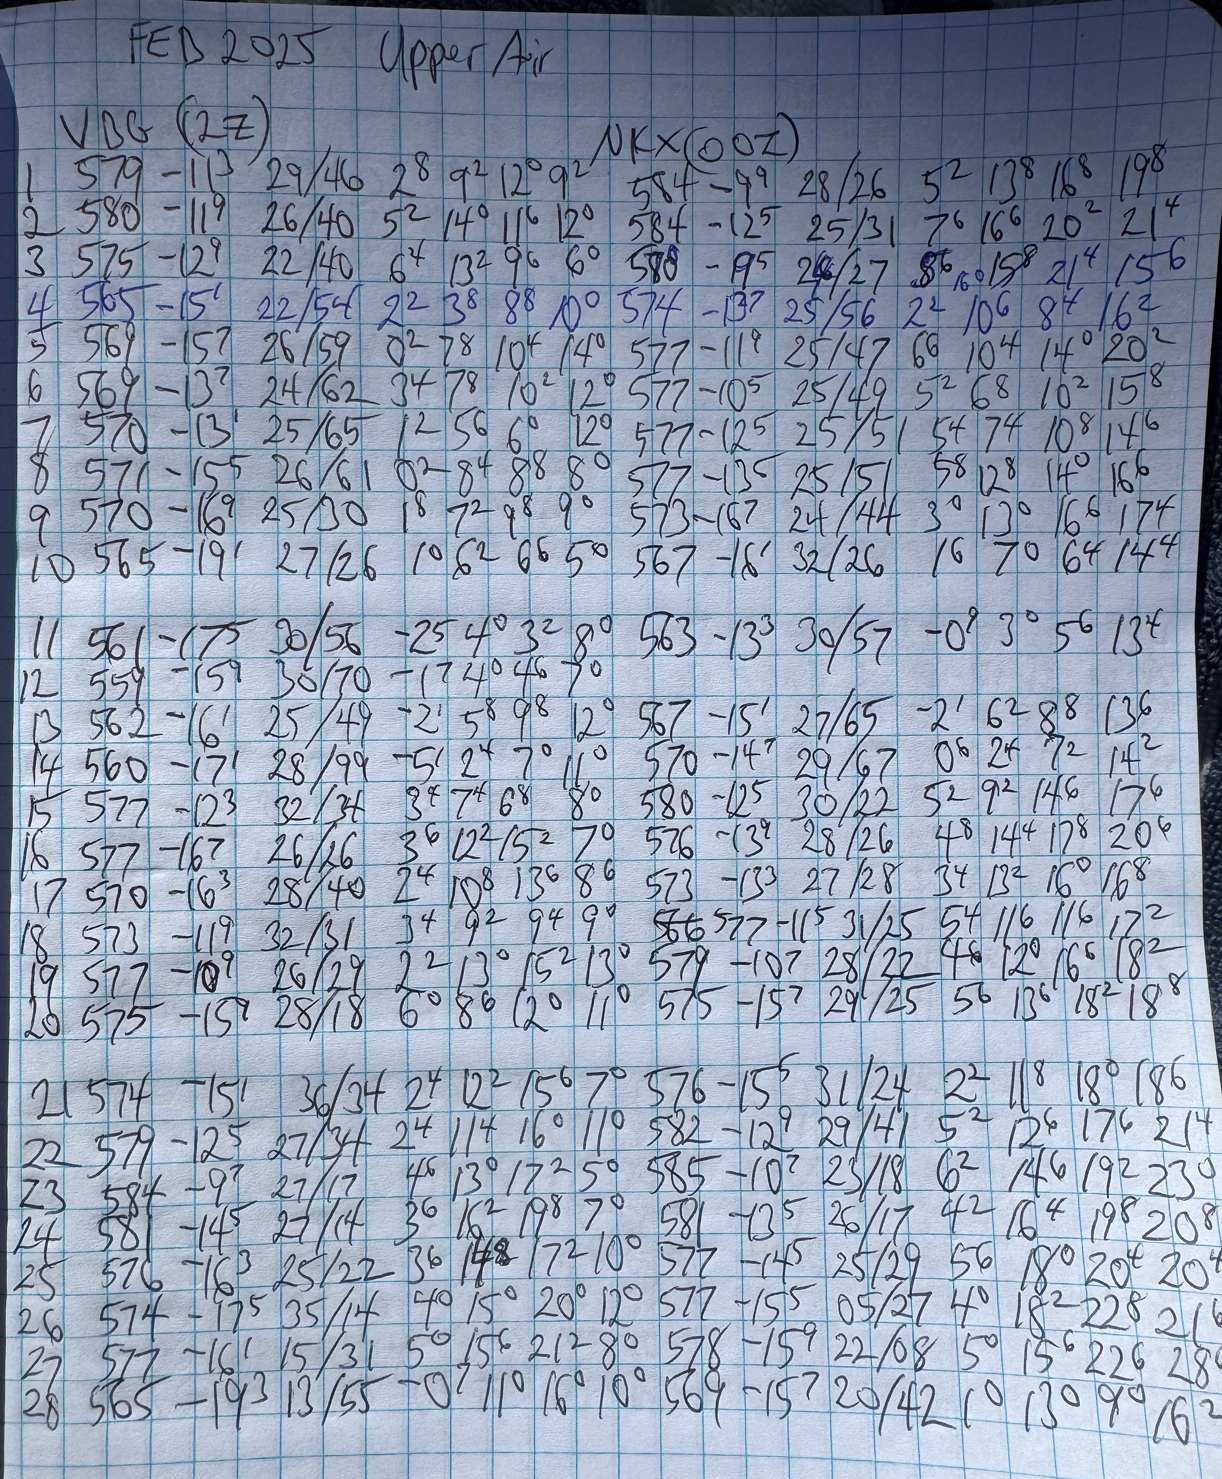 FEB 2025 Upper Air
VBG (12Z) NKX (00Z)
1 579 -11³ 29/46 2⁸ 9² 12⁰ 9² 584 -9⁹ 28/26 5² 13⁸ 16⁸ 19⁸
2 580 -11⁹ 26/40 5² 14⁰ 11⁶ 12⁰ 584 -12⁵ 25/31 7⁶ 16⁶ 20² 21⁴
3 575 -12⁹ 22/40 6⁴ 13² 9⁶ 6⁰ 580 -9⁵ 26/27 8⁶ 16⁰ 15⁸ 21⁴ 15⁶
4 565 -15¹ 22/54 2² 3⁸ 8⁸ 10⁰ 574 -13⁷ 25/56 2² 10⁶ 8⁴ 16²
5 569 -15⁷ 26/59 0² 7⁸ 10⁴ 14⁰ 577 -11⁹ 25/47 6⁰ 10⁴ 14⁰ 20²
6 569 -13⁷ 24/62 3⁴ 7⁸ 10² 12⁰ 577 -10⁵ 25/49 5² 6⁸ 10² 15⁸
7 570 -13¹ 25/65 1² 5⁶ 6⁰ 12⁰ 577 -12⁵ 25/51 5⁴ 7⁴ 10⁸ 14⁶
8 571 -15⁵ 26/61 0² 8⁴ 8⁸ 8⁰ 577 -13⁵ 25/51 5⁸ 12⁸ 14⁰ 16⁶
9 570 -16⁹ 25/30 1⁸ 7² 9⁸ 9⁰ 573 -16⁷ 24/44 3⁰ 13⁰ 16⁶ 17⁴
10 565 -19¹ 27/26 1⁰ 6² 6⁶ 5⁰ 567 -16¹ 32/26 1⁶ 7⁰ 6⁴ 14⁴
11 561 -17⁵ 30/56 -2⁵ 4⁰ 3² 8⁰ 563 -13³ 30/57 -0⁹ 3⁰ 5⁶ 13⁴
12 559 -15⁹ 30/70 -1⁷ 4⁰ 4⁶ 7⁰
13 562 -16¹ 25/49 -2¹ 5⁸ 9⁸ 12⁰ 567 -15¹ 27/65 -2¹ 6² 8⁸ 13⁶
14 560 -17¹ 28/99 -5¹ 2⁴ 7⁰ 11⁰ 570 -14⁷ 29/67 0⁶ 2⁴ 7² 14²
15 577 -12³ 32/34 3⁴ 7⁴ 6⁸ 8⁰ 580 -12⁵ 30/22 5² 9² 14⁶ 17⁶
16 577 -16⁷ 26/26 3⁶ 12² 15² 7⁰ 576 -13⁹ 28/26 4⁸ 14⁴ 17⁸ 20⁶
17 570 -16³ 28/40 2⁴ 10⁸ 13⁶ 8⁶ 573 -13³ 27/28 3⁴ 13² 16⁰ 16⁸
18 573 -11⁹ 32/31 3⁴ 9² 9⁴ 9⁰ 577 -11⁵ 31/25 5⁴ 11⁶ 11⁶ 17²
19 577 -10⁹ 26/29 2² 13⁰ 15² 13⁰ 579 -10⁷ 28/22 4⁶ 12⁰ 16⁶ 18²
20 575 -15⁹ 28/18 6⁰ 8⁶ 12⁰ 11⁰ 575 -15⁷ 29/25 5⁶ 13⁶ 18² 18⁸
21 574 -15¹ 36/34 2⁴ 12² 15⁶ 7⁰ 576 -15⁵ 31/24 2² 11⁸ 18⁰ 18⁶
22 579 -12⁵ 27/34 2⁴ 11⁴ 16⁰ 11⁰ 582 -12⁹ 29/41 5² 12⁶ 17⁶ 21⁴
23 584 -9⁷ 27/17 4⁶ 13⁰ 17² 5⁰ 585 -10⁷ 23/18 6² 14⁶ 19² 23⁰
24 581 -14⁵ 27/14 3⁶ 16² 19⁸ 7⁰ 581 -13⁵ 26/17 4² 16⁴ 19⁸ 20⁸
25 576 -16³ 25/22 3⁶ 14⁸ 17² 10⁰ 577 -14⁵ 25/29 5⁶ 18⁰ 20⁴ 20⁴
26 574 -17⁵ 35/14 4⁰ 15⁰ 20⁰ 12⁰ 577 -15⁵ 05/27 4⁰ 18² 22⁸ 21⁶
27 577 -16¹ 15/31 5⁰ 15⁶ 21² 8⁰ 578 -15⁹ 22/08 5⁰ 15⁶ 22⁶ 28⁶
28 565 -19³ 13/55 -0⁷ 11⁰ 16⁰ 10⁰ 569 -15⁷ 20/42 1⁰ 13⁰ 9⁰ 16²